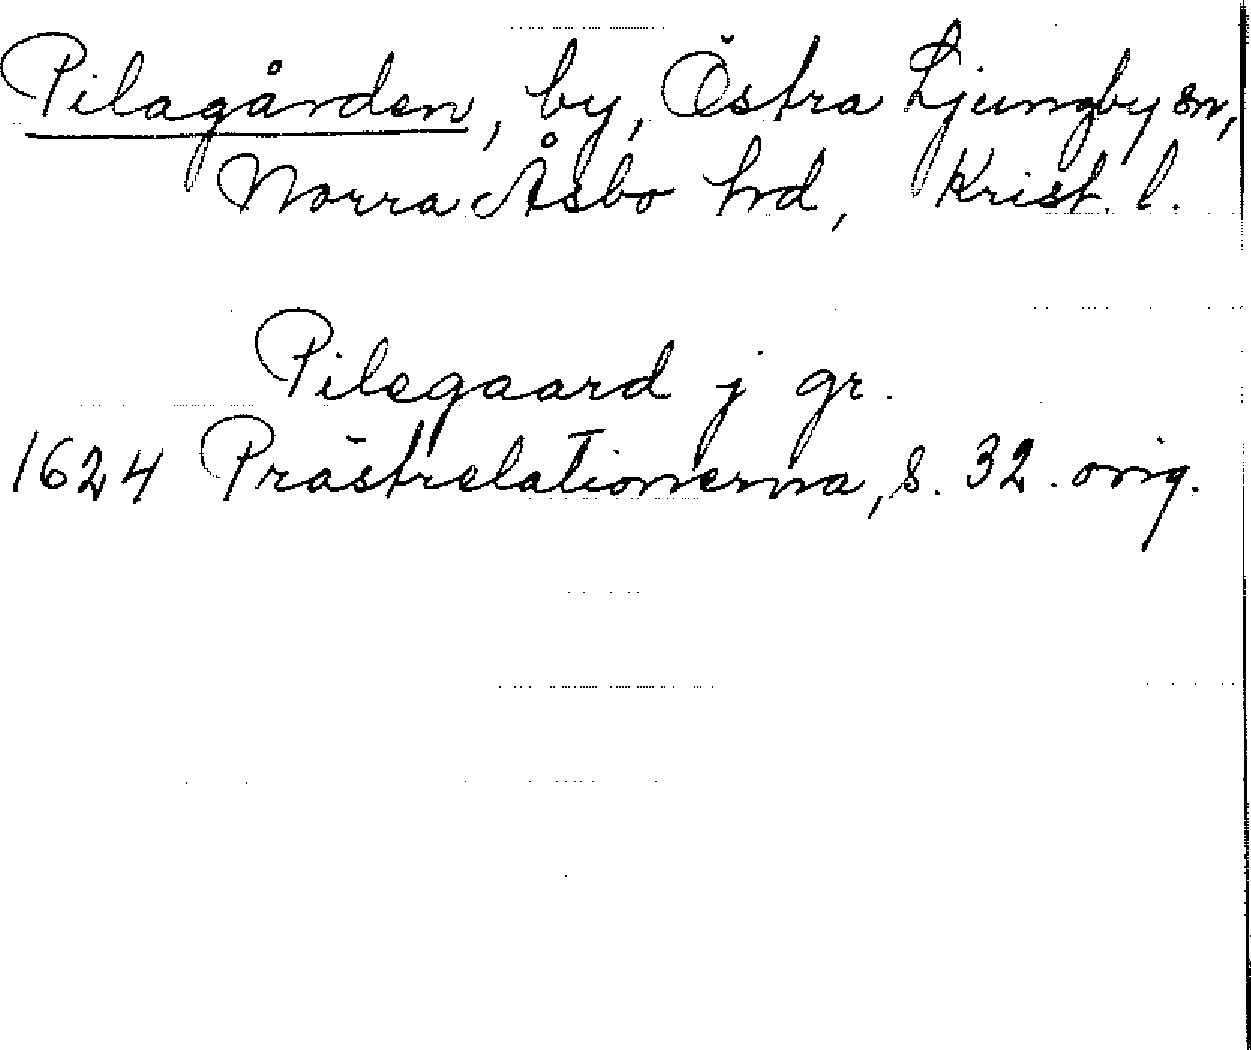 Pilagården, by, Östra Ljungby sn,
Norra Åsbo hrd, Krist. l.
Pilegaard j gr.
1624 Prästrelationerna, s. 32. orig.